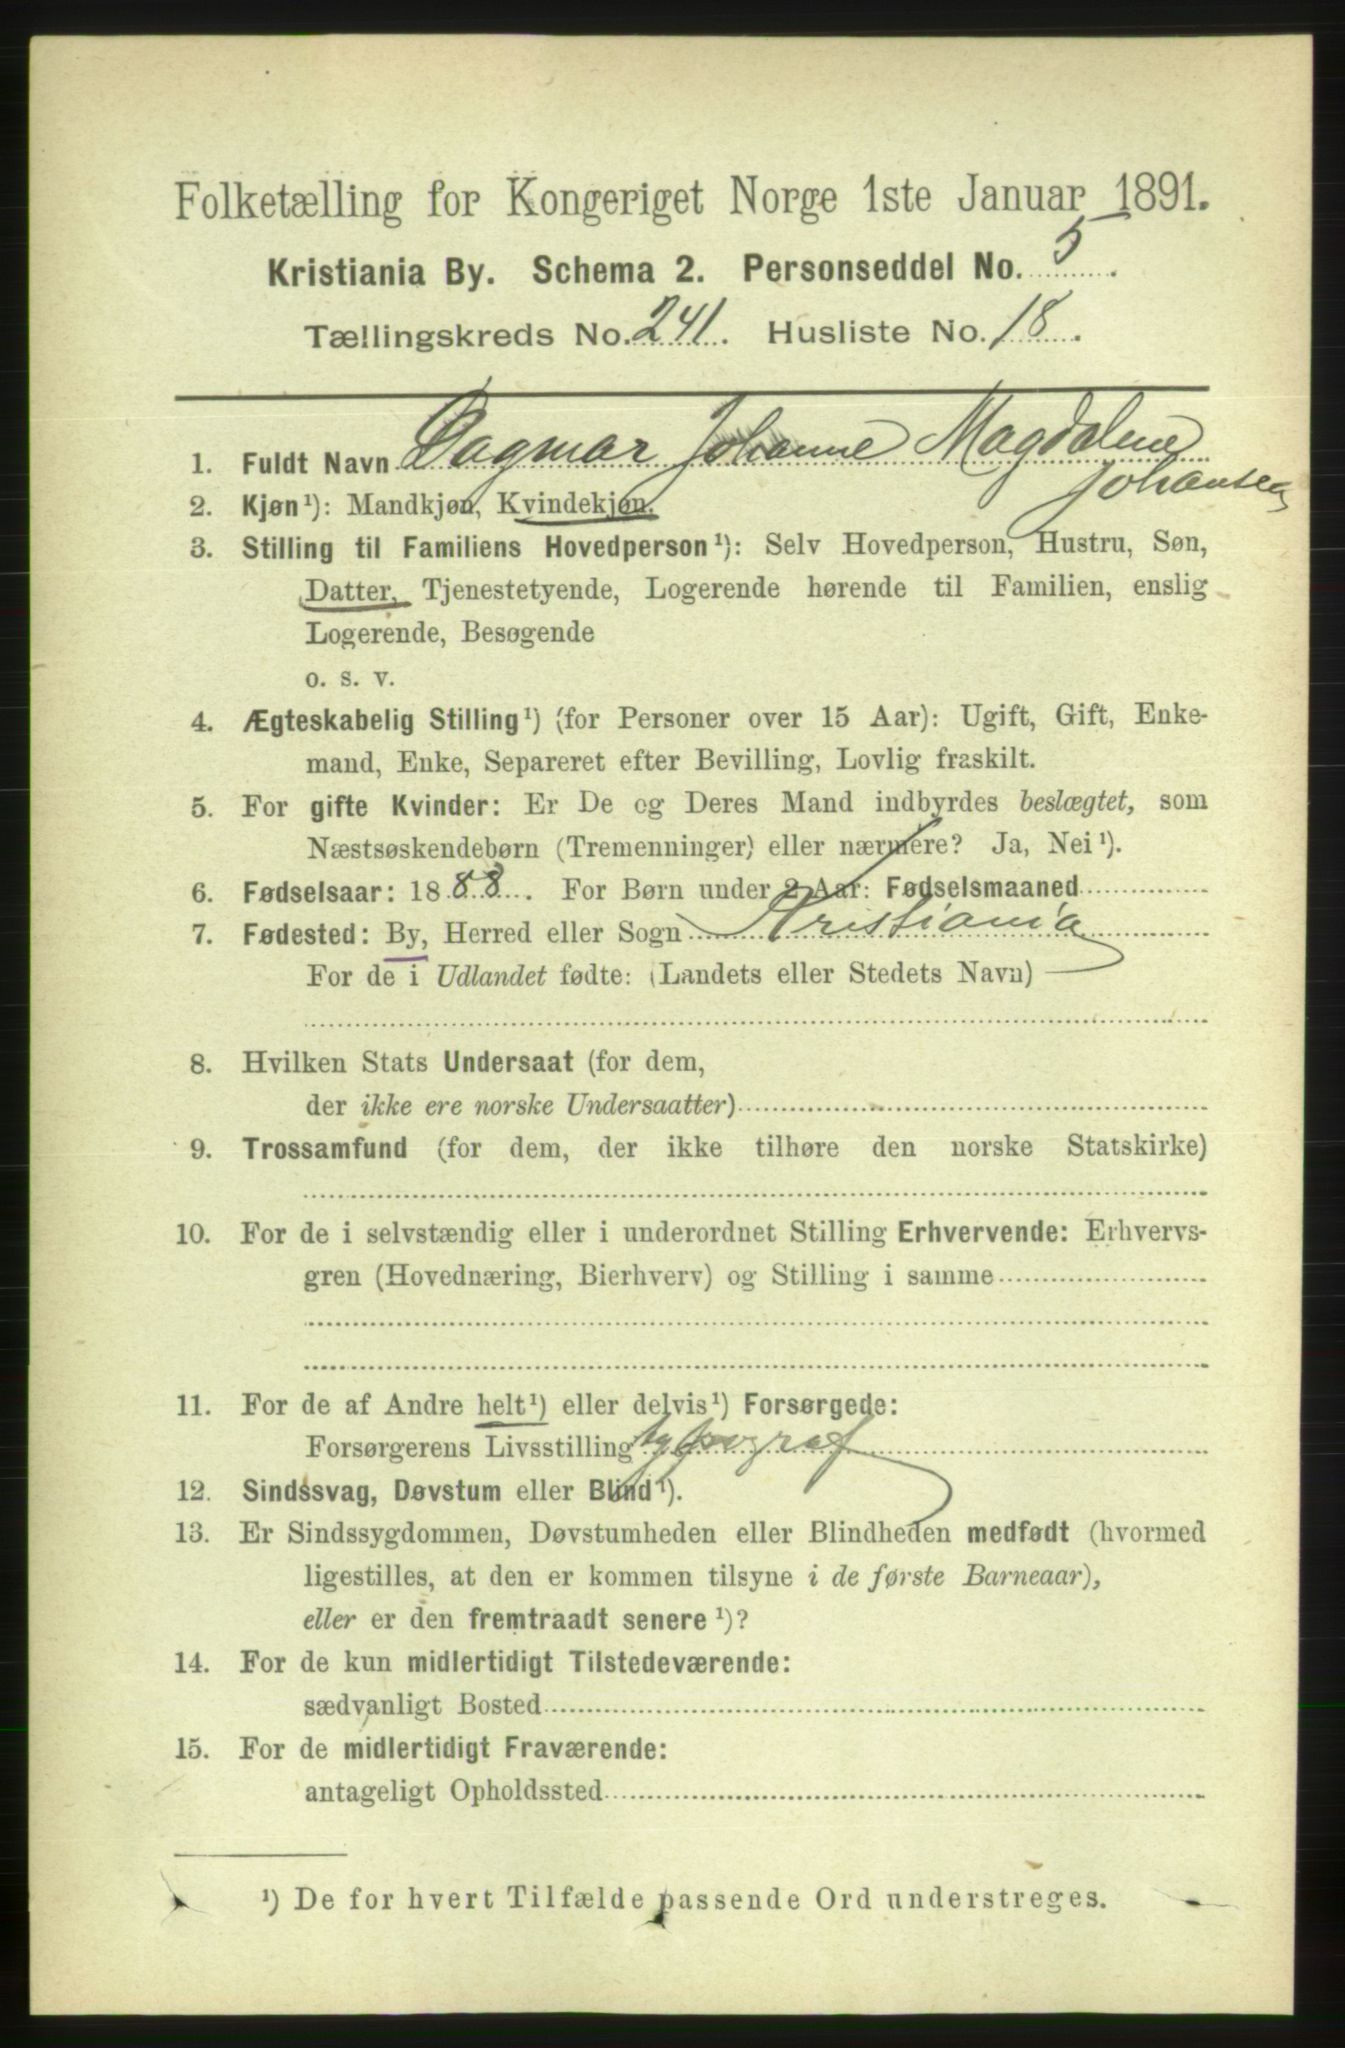 Folketælling for Kongeriget Norge 1ste Januar 1891.
Kristiania By. Schema 2. Personseddel No. 5.
Tællingskreds No. 241. Husliste No. 18.
1. Fuldt Navn Dagmar Johanne Magdalene
Johansen
2. Kjøn¹): Mandkjøn, Kvindekjøn.
3. Stilling til Familiens Hovedperson¹): Selv Hovedperson, Hustru, Søn,
Datter, Tjenestetyende, Logerende hørende til Familien, enslig
Logerende, Besøgende
o. s. v.
4. Ægteskabelig Stilling¹) (for Personer over 15 Aar): Ugift, Gift, Enke-
mand, Enke, Separeret efter Bevilling, Lovlig fraskilt.
5. For gifte Kvinder: Er De og Deres Mand indbyrdes beslægtet, som
Næstsøskendebørn (Tremenninger) eller nærmere? Ja, Nei¹).
6. Fødselsaar: 1888. For Børn under 2 Aar: Fødselsmaaned
7. Fødested: By, Herred eller Sogn Kristiania
For de i Udlandet fødte: (Landets eller Stedets Navn)
8. Hvilken Stats Undersaat (for dem,
der ikke ere norske Undersaatter)
9. Trossamfund (for dem, der ikke tilhøre den norske Statskirke)
10. For de i selvstændig eller i underordnet Stilling Erhvervende: Erhvervs-
gren (Hovednæring, Bierhverv) og Stilling i samme
11. For de af Andre helt¹) eller delvis¹) Forsørgede:
Forsørgerens Livsstilling typograf
12. Sindssvag, Døvstum eller Blind¹).
13. Er Sindssygdommen, Døvstumheden eller Blindheden medfødt (hvormed
ligestilles, at den er kommen tilsyne i de første Barneaar),
eller er den fremtraadt senere¹)?
14. For de kun midlertidigt Tilstedeværende:
sædvanligt Bosted
15. For de midlertidigt Fraværende:
antageligt Opholdssted
¹) De for hvert Tilfælde passende Ord understreges.